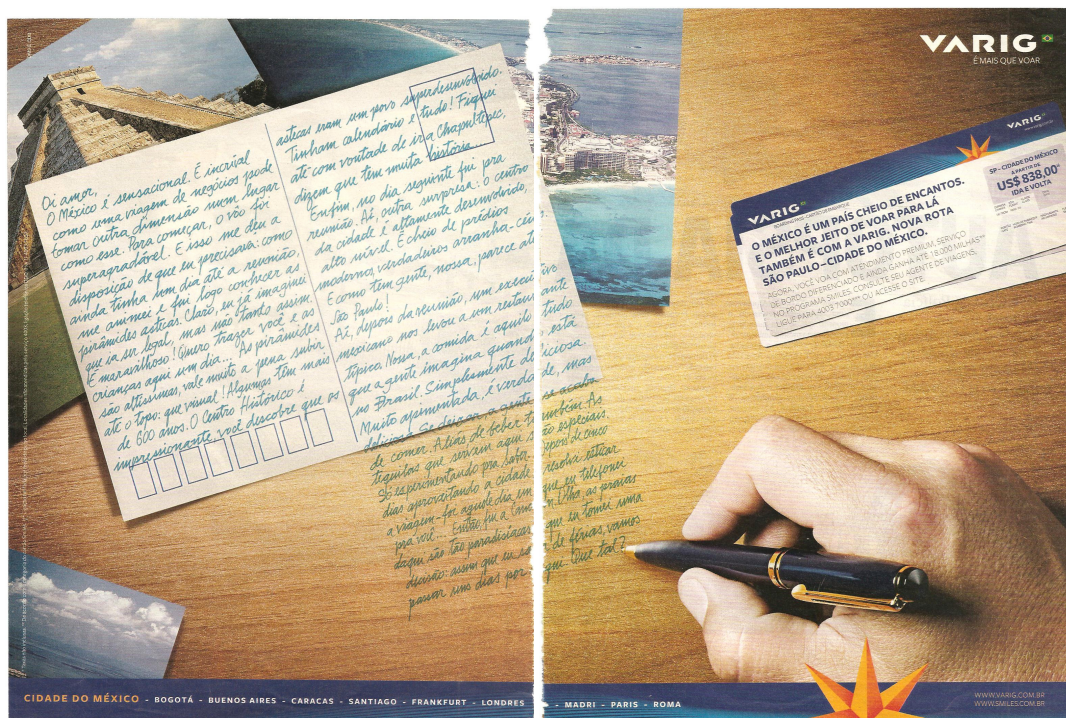 Oi amor,
O México é sensacional. É incrível
como uma viagem de negócios pode
tomar outra dimensão num lugar
como esse. Para começar, o vôo foi
superagradável. E isso me deu a
disposição de que eu precisava: como
ainda tinha um dia até a reunião,
me animei e fui logo conhecer as
pirâmides astecas. Claro, eu já imaginei
que ia ser legal, mas não tanto assim.
É maravilhoso! Quero trazer você e as
crianças aqui um dia... As pirâmides
são altíssimas, vale muito a pena subir
até o topo: que visual! Algumas têm mais
de 600 anos. O Centro Histórico é
impressionante você descobre que os
astecas eram um povo superdesenvolvido.
Tinham calendário e tudo! Fiquei
até com vontade de ir a Chapultepec,
dizem que tem muita história...
Enfim, no dia seguinte fui pra
reunião. Aí, outra surpresa: o centro
da cidade é altamente desenvolvido,
alto nível. É cheio de prédios
modernos, verdadeiros arranha-céus
E como tem gente, nossa, parece até
São Paulo!
Aí, depois da reunião, um executivo
mexicano nos levou a um restaurante
típico. Nossa, a comida é aquilo tudo
que a gente imagina quando está
no Brasil. Simplesmente deliciosa.
Muito apimentada, é verdade, mas
deliciosa. Se deixar, a gente se acaba
de comer. Aliás de beber também. As
tequilas que servem aqui são especiais.
Só experimentando pra saber. Depois de cinco
dias aproveitando a cidade resolvi esticar
a viagem - foi aquele dia em que eu telefonei
pra você... Então fui a Cancún. Olha, as praias
daqui são tão paradisíacas que eu tomei uma
decisão: assim que eu sair de férias, vamos
passar uns dias por aqui. Que tal?
VARIG
É MAIS QUE VOAR
VARIG
VARIG
O MÉXICO É UM PAÍS CHEIO DE ENCANTOS.
E O MELHOR JEITO DE VOAR PARA LÁ
TAMBÉM É COM A VARIG. NOVA ROTA
SÃO PAULO–CIDADE DO MÉXICO.
AGORA, VOCÊ VOA COM ATENDIMENTO PREMIUM, SERVIÇO
DE BORDO DIFERENCIADO E AINDA GANHA ATÉ 18.000 MILHAS**
NO PROGRAMA SMILES. CONSULTE SEU AGENTE DE VIAGENS,
LIGUE PARA 4003 7000*** OU ACESSE O SITE.
SP - CIDADE DO MÉXICO
A PARTIR DE
US$ 838,00*
IDA E VOLTA
CIDADE DO MÉXICO - BOGOTÁ - BUENOS AIRES - CARACAS - SANTIAGO - FRANKFURT - LONDRES - MADRI - PARIS - ROMA
WWW.VARIG.COM.BR
WWW.SMILES.COM.BR